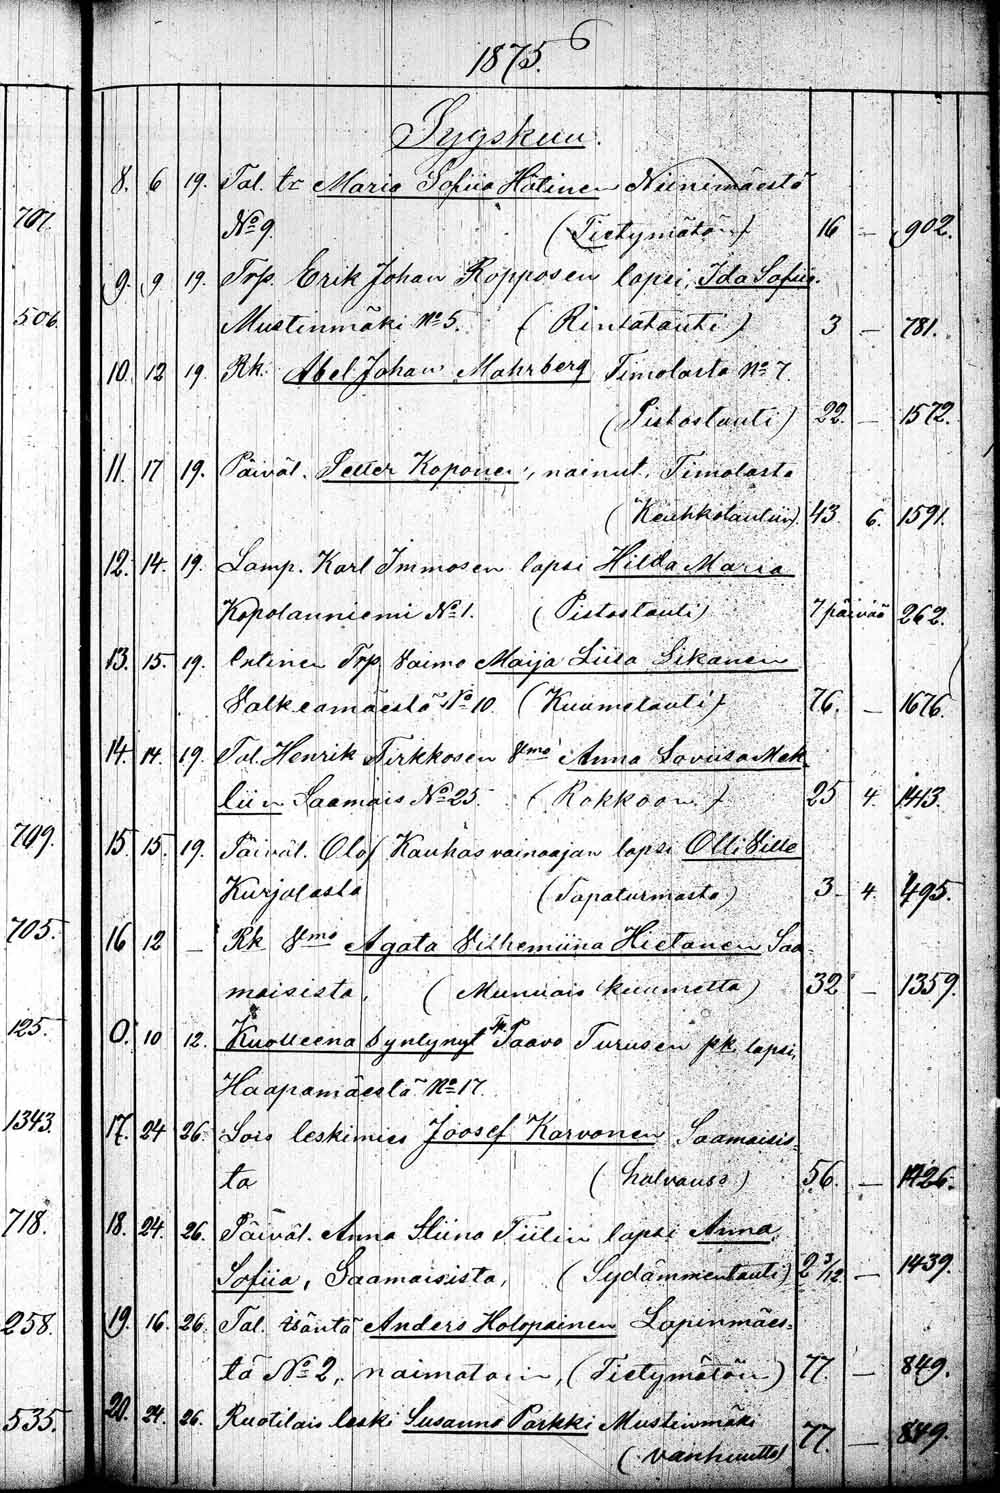 1875. 6
Sygskuu.
8. 6 19. Tal. tr Maria Sofiia Hötinen Niinimäestä
707. No 9. (Tietymätön) 16 — 902.
9. 9 19. Trp. Erik Johan Ropposen lapsi, Ida Sofiia.
506. Mustinmäki No 5. (Rintatauti) 3 — 781.
10. 12 19. Rk. Abel Johan Mahrberg Timolasta No 7.
(Pistostauti) 22. — 1572.
11. 17 19. Päiväl. Petter Koponen, nainut, Timolasta
(Keuhkotautiin) 43 6. 1591.
12. 14. 19. Lamp. Karl Immosen lapsi Hilda Maria
Kopolanniemi No 1. (Pistostauti) 7 päivää 262.
13. 15. 19. Entinen Trp. Vaimo Maija Liisa Sikanen
Valkeamäestä No 10. (Kuumetauti) 76. — 1676.
14. 14. 19. Tal. Henrik Tirkkosen Vmo Anna Lovisa Mek-
liin Saamais No 25. (Rokkoon) 25 4. 143.
709. 15. 15. 19. Päiväl. Olof Kauhas vainaajan lapsi Olli Ville
Kurjalasta (Tapaturmasta) 3 4. 495.
705. 16 12 — Rk. Vmo Agata Vilhemiina Hietanen Saa-
maisista, (Munuais kuumetta) 32 — 1359.
125. 0. 10 12. Kuolleena Syntynyt Tp. Paavo Turusen pk. lapsi,
Haapamäestä No 17.
1343. 17. 24 26. Lois leskimies Joosef Karvonen Saamaisis-
ta (halvaus) 56. — 1426.
718. 18. 24. 26. Päiväl. Anna Stiina Tiilin lapsi Anna
Sofiia, Saamaisista, (Sydämmentauti) 2 3/12. — 1439.
258. 19. 16. 26. Tal. isäntä Anders Holopainen Lapinmäes-
tä No 2, naimatoin, (Tietymätön) 77. — 849.
535. 20. 24. 26. Ruotilais leski Susanna Parkki Mustinmäki
(vanhuutta) 77. — 849.